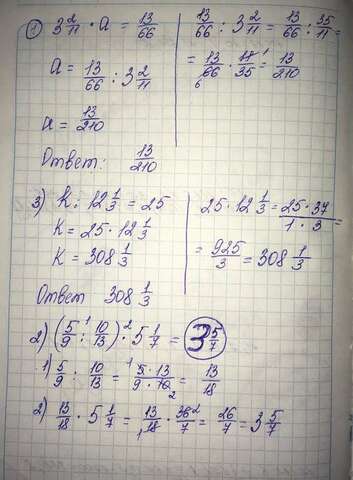 1) 3 2/11 · a = 13/66
a = 13/66 : 3 2/11
a = 13/210
Ответ: 13/210
13/66 : 3 2/11 = 13/66 : 35/11 =
= 13/66 6 · 11/35 1 = 13/210
3) K : 12 1/3 = 25
K = 25 · 12 1/3
K = 308 1/3
Ответ 308 1/3
25 · 12 1/3 = 25 · 37/1 · 3
= 925/3 = 308 1/3
2) (5/9 :1 10/13) ·2 5 1/7 = 3 5/7
1) 5/9 : 10/13 = 1 5 · 13/9 · 10 2 = 13/18
2) 13/18 · 5 1/7 = 13/18 1 · 36 2/7 = 26/7 = 3 5/7